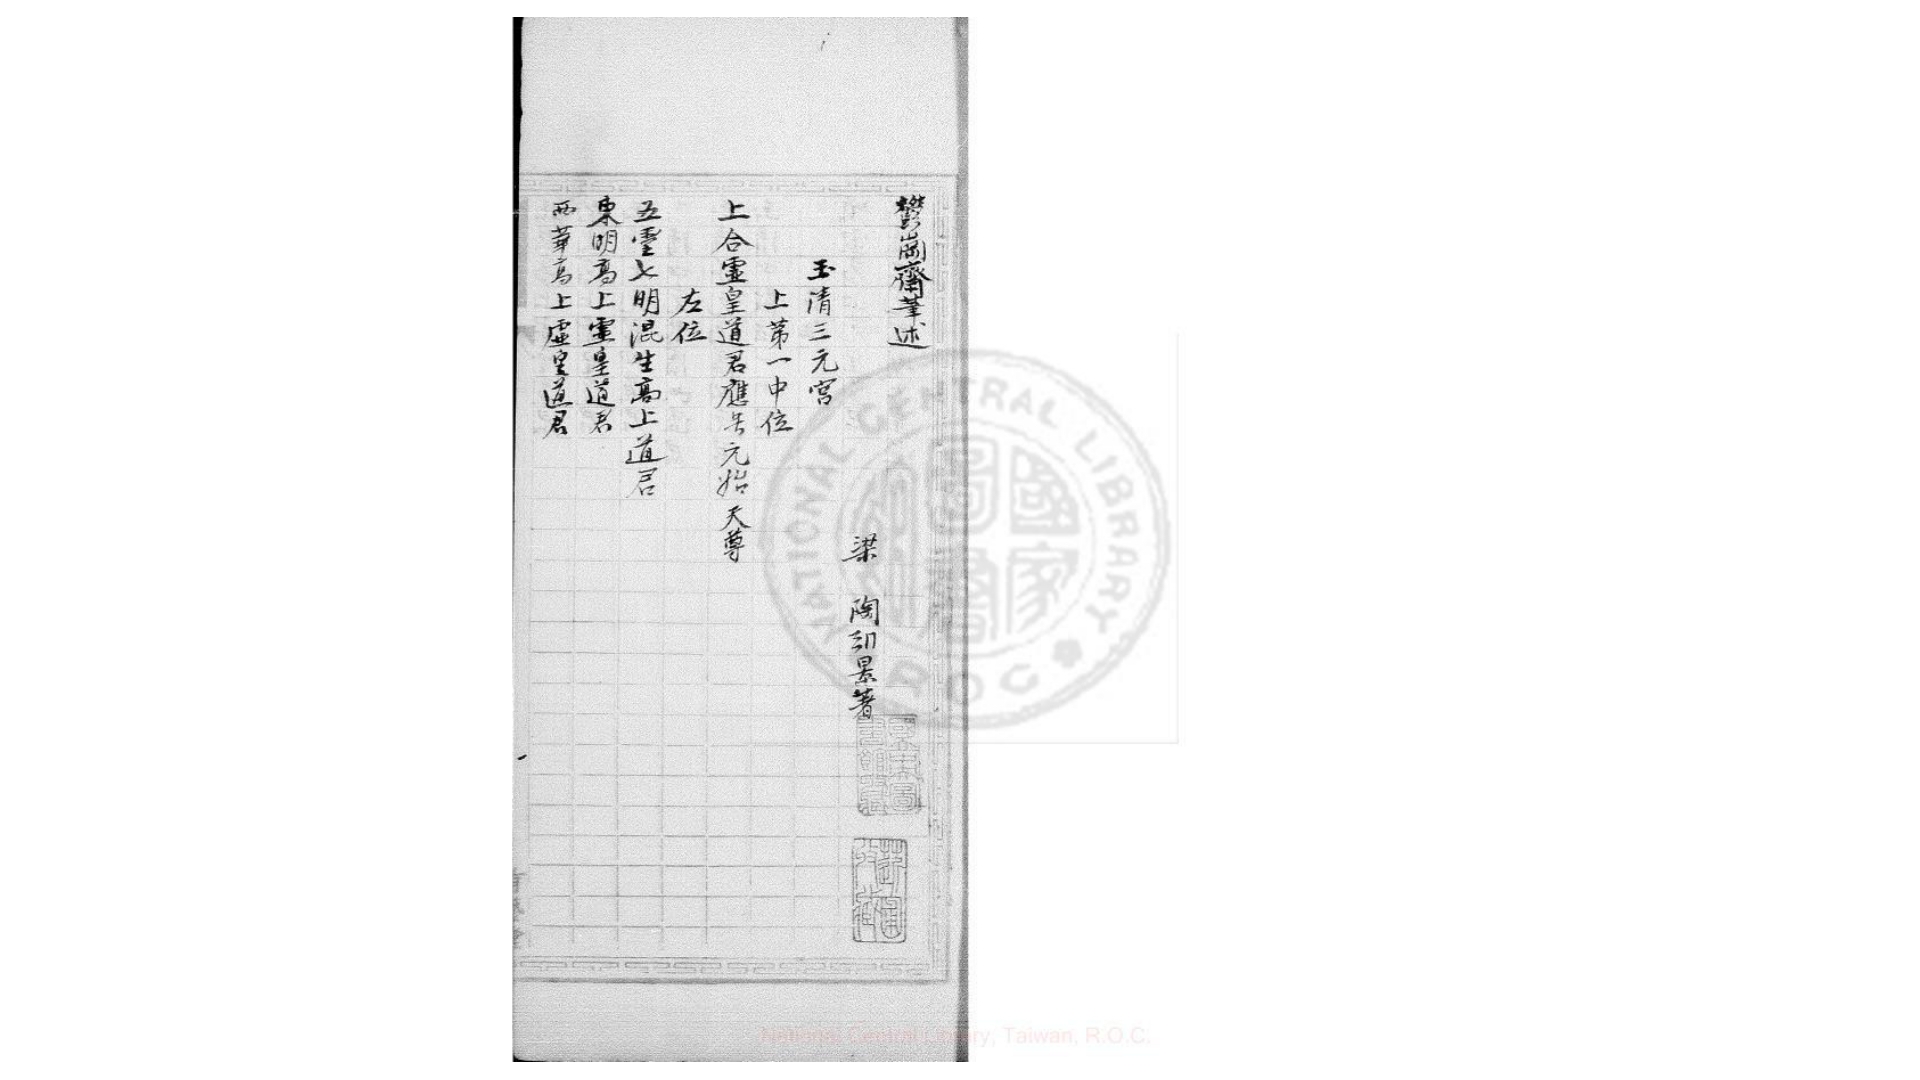 鬱岡齋筆述
梁　陶弘景著
玉清三元宮
上第一中位
上合虛皇道君應号元始天尊
左位
五靈七明混生高上道君
東明高上虛皇道君
西華高上虛皇道君
NATIONAL CENTRAL LIBRARY
R.O.C.
國家圖書館
National Central Library, Taiwan, R.O.C.